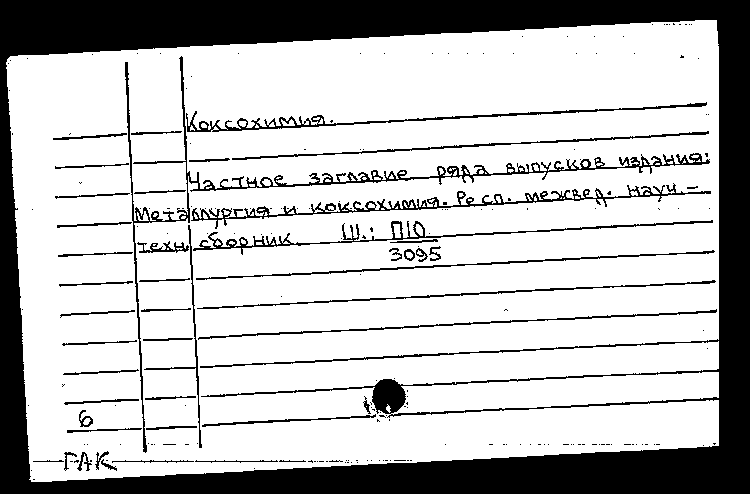 Коксохимия.
Частное заглавие ряда выпусков издания:
Металлургия и коксохимия. Респ. межвед. науч.-
техн. сборник. Ш.: П10
3095
6
ГАК